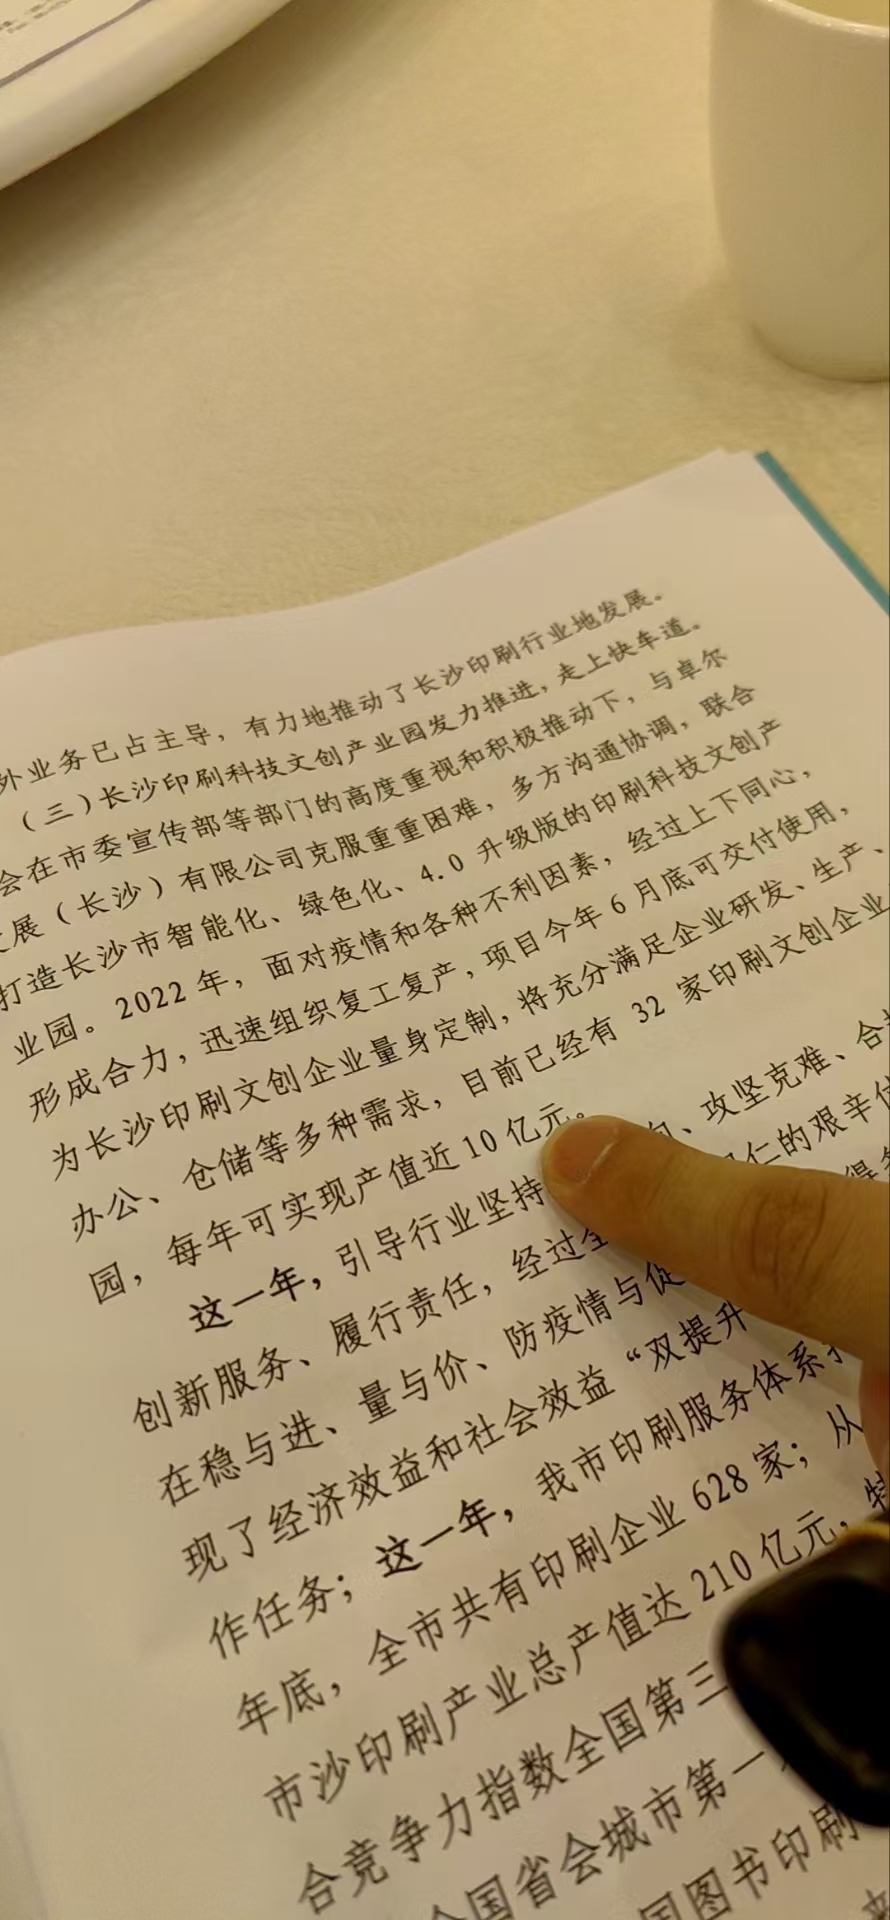 外业务已占主导，有力地推动了长沙印刷行业地发展。
（三）长沙印刷科技文创产业园发力推进，走上快车道。
会在市委宣传部等部门的高度重视和积极推动下，与卓尔
展（长沙）有限公司克服重重困难，多方沟通协调，联合
打造长沙市智能化、绿色化、4.0 升级版的印刷科技文创产
业园。2022 年，面对疫情和各种不利因素，经过上下同心，
形成合力，迅速组织复工复产，项目今年 6 月底可交付使用，
为长沙印刷文创企业量身定制，将充分满足企业研发、生产、
办公、仓储等多种需求，目前已经有 32 家印刷文创企业
园，每年可实现产值近 10 亿元。
这一年，引导行业坚持 、攻坚克难、合
创新服务、履行责任，经过全 仁的艰辛付
在稳与进、量与价、防疫情与促
现了经济效益和社会效益“双提升
作任务；这一年，我市印刷服务体系
年底，全市共有印刷企业 628 家；从
市沙印刷产业总产值达 210 亿元，特
合竞争力指数全国第三
全国省会城市第一
国图书印刷